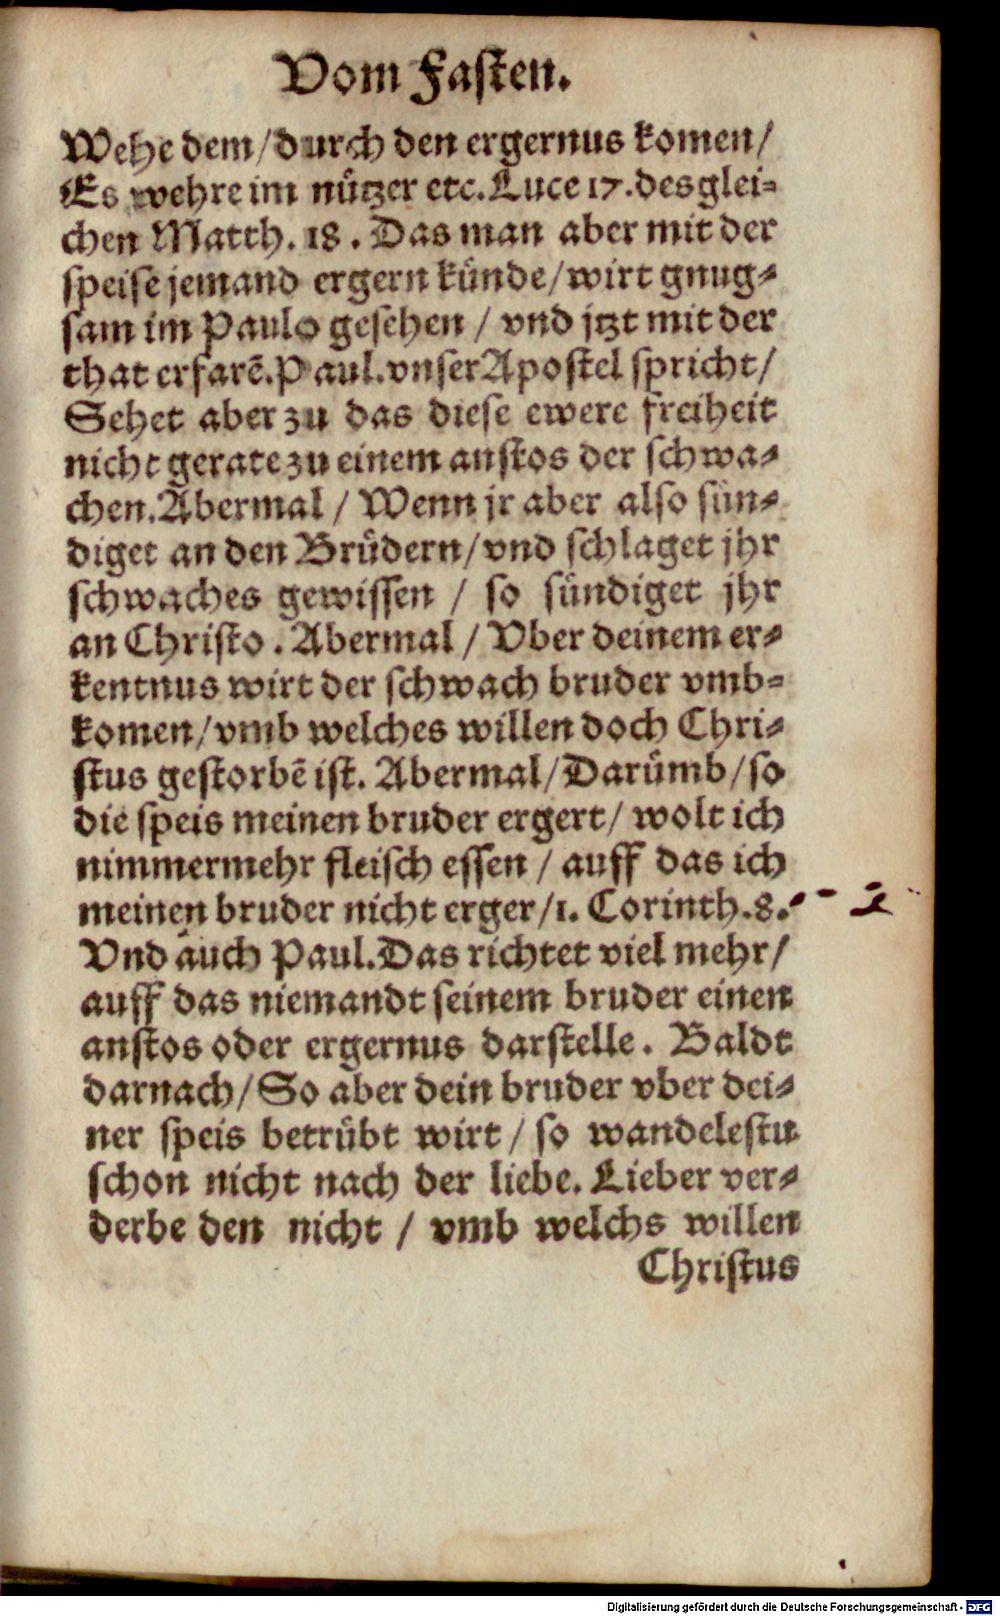 Vom Fasten.
Wehe dem/durch den ergernus komen/
Es wehre im nützer etc. Luce 17. desglei-
chen Matth. 18. Das man aber mit der
speise jemand ergern künde/wirt gnug-
sam im Paulo gesehen / vnd jtzt mit der
that erfarē. Paul. vnser Apostel spricht/
Sehet aber zu das diese ewere freiheit
nicht gerate zu einem anstos der schwa-
chen. Abermal / Wenn jr aber also sün-
diget an den Brüdern/vnd schlaget jhr
schwaches gewissen / so sündiget jhr
an Christo. Abermal / Vber deinem er-
kentnus wirt der schwach bruder vmb-
komen/vmb welches willen doch Chri-
stus gestorbē ist. Abermal/Darümb/so
die speis meinen bruder ergert/ wolt ich
nimmermehr fleisch essen / auff das ich
meinen bruder nicht erger/1. Corinth.8.
Vnd auch Paul. Das richtet viel mehr/
auff das niemandt seinem bruder einen
anstos oder ergernus darstelle. Baldt
darnach/So aber dein bruder vber dei-
ner speis betrübt wirt / so wandelestu
schon nicht nach der liebe. Lieber ver-
derbe den nicht / vmb welchs willen
Christus
Digitalisierung gefördert durch die Deutsche Forschungsgemeinschaft - DFG